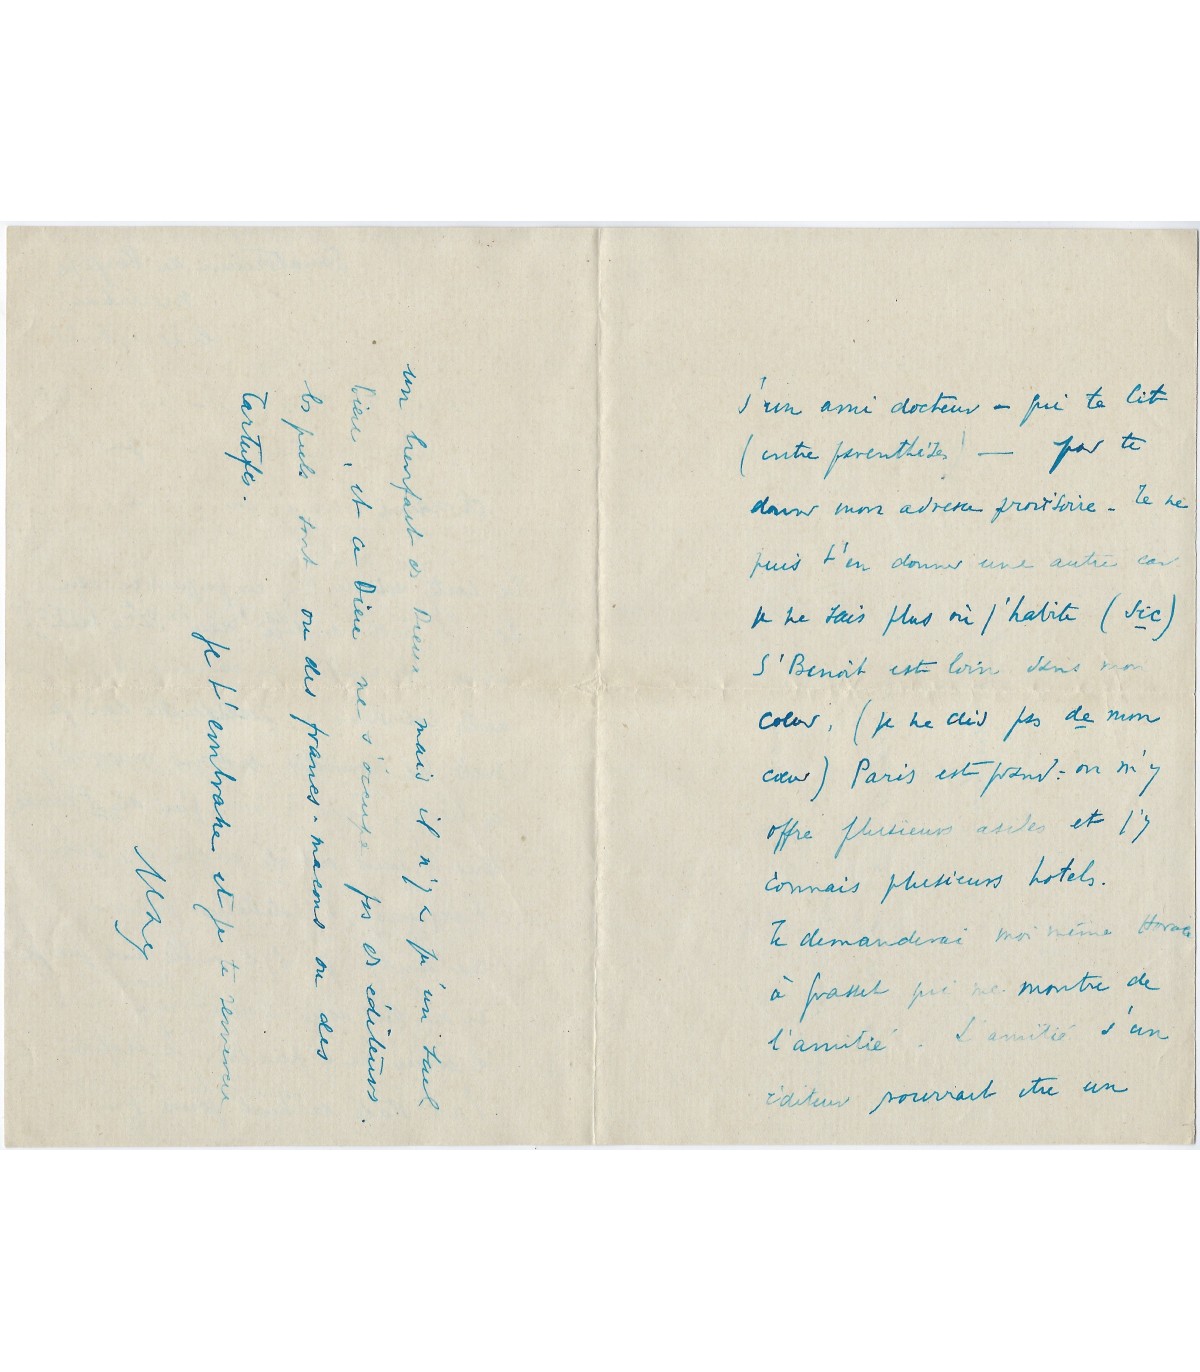 d'un ami docteur — qui te lit
(entre parenthèses) — pour te
donner mon adresse provisoire. Je ne
puis t'en donner une autre car
je ne sais plus où j'habite (sic)
St Benoit est loin dans mon
cœur, (je ne dis pas de mon
cœur) Paris est grand : on m'y
offre plusieurs asiles et j'y
connais plusieurs hotels.
Je demanderai moi même Horace
à Grasset qui me montre de
l'amitié. L'amitié d'un
éditeur pourrait être un
un bienfait de Dieu mais il n'y a qu'un seul
Dieu, et ce Dieu ne s'occupe pas des éditeurs.
sont ou des francs-maçons ou des
Tartufes.
Je t'embrasse et je te
Max